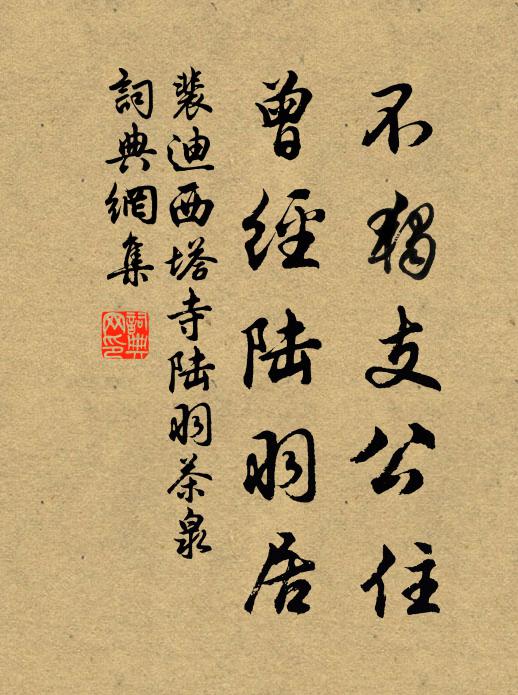 不獨支公住
曾經陸羽居
裴迪西塔寺陸羽茶泉
詞典網集
詞典網印